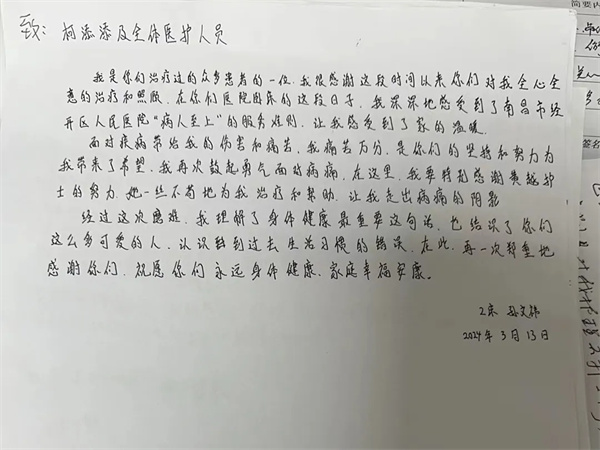 致：柯添添及全体医护人员
我是你们治疗过的众多患者的一位，我很感谢这段时间以来你们对我全心全
意的治疗和照顾，在你们医院卧床的这段日子，我深深地感受到了南昌市经
开区人民医院“病人至上”的服务准则，让我感受到了家的温暖。
面对疾病带给我的伤害和痛苦，我痛苦万分，是你们的坚持和努力为
我带来了希望，我再次鼓起勇气面对病痛，在这里，我要特别感谢黄越护
士的努力，她一丝不苟地为我治疗和帮助，让我走出病痛的阴影
经过这次磨难，我理解了身体健康最重要这句话，也结识了你们
这么多可爱的人，认识到到过去生活习惯的错误，在此，再一次郑重地
感谢你们，祝愿你们永远身体健康、家庭幸福安康。
2床 孙文
2024年3月13日